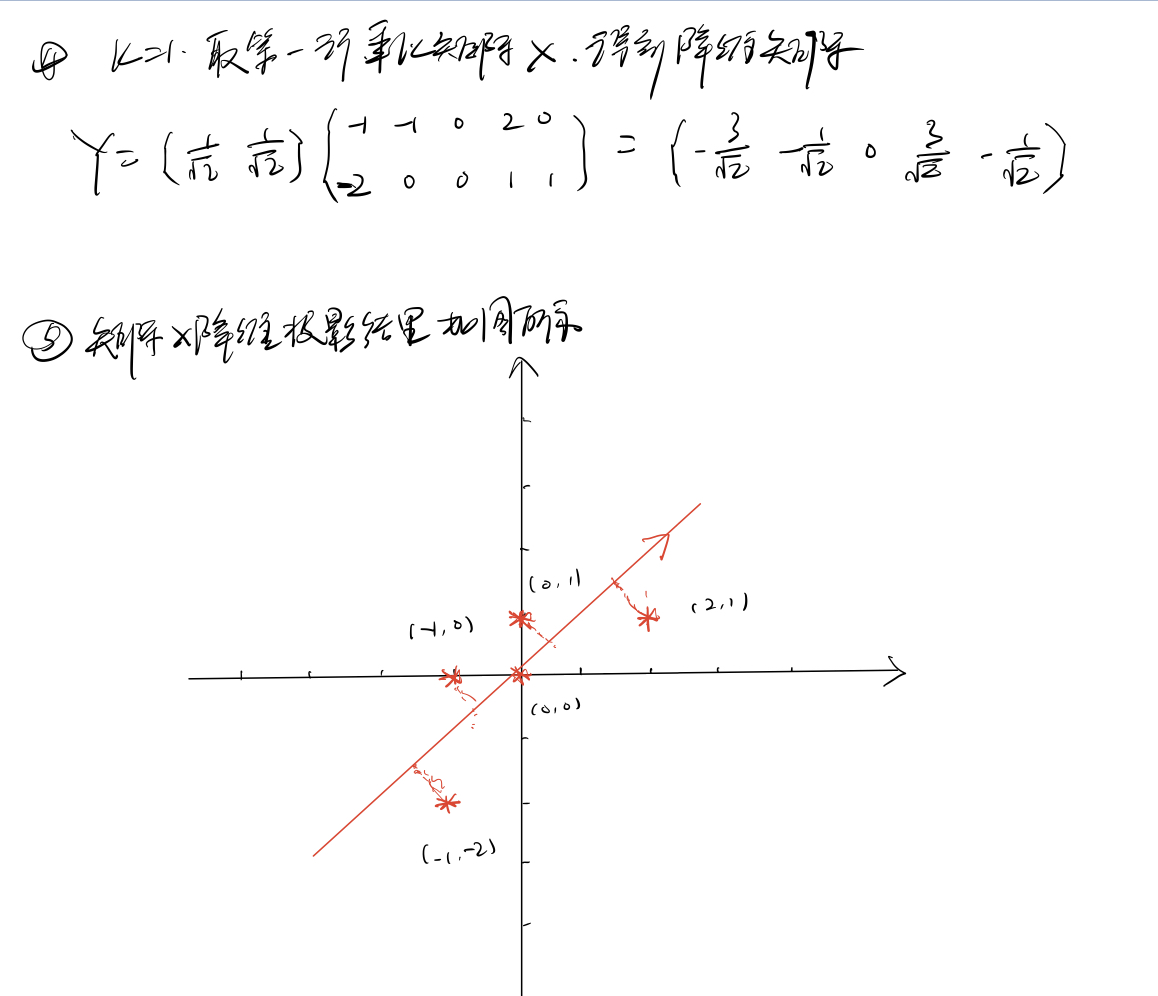 ④ K=1. 取第一行乘以矩阵X.得到降维矩阵
Y = (1/√2 1/√2) (-1 -1 0 2 0 ; -2 0 0 1 1) = (-3/√2 -1/√2 0 3/√2 -1/√2)
⑤ 矩阵X降维投影结果如图所示
(0,1)
(2,1)
(-1,0)
(0,0)
(-1,-2)